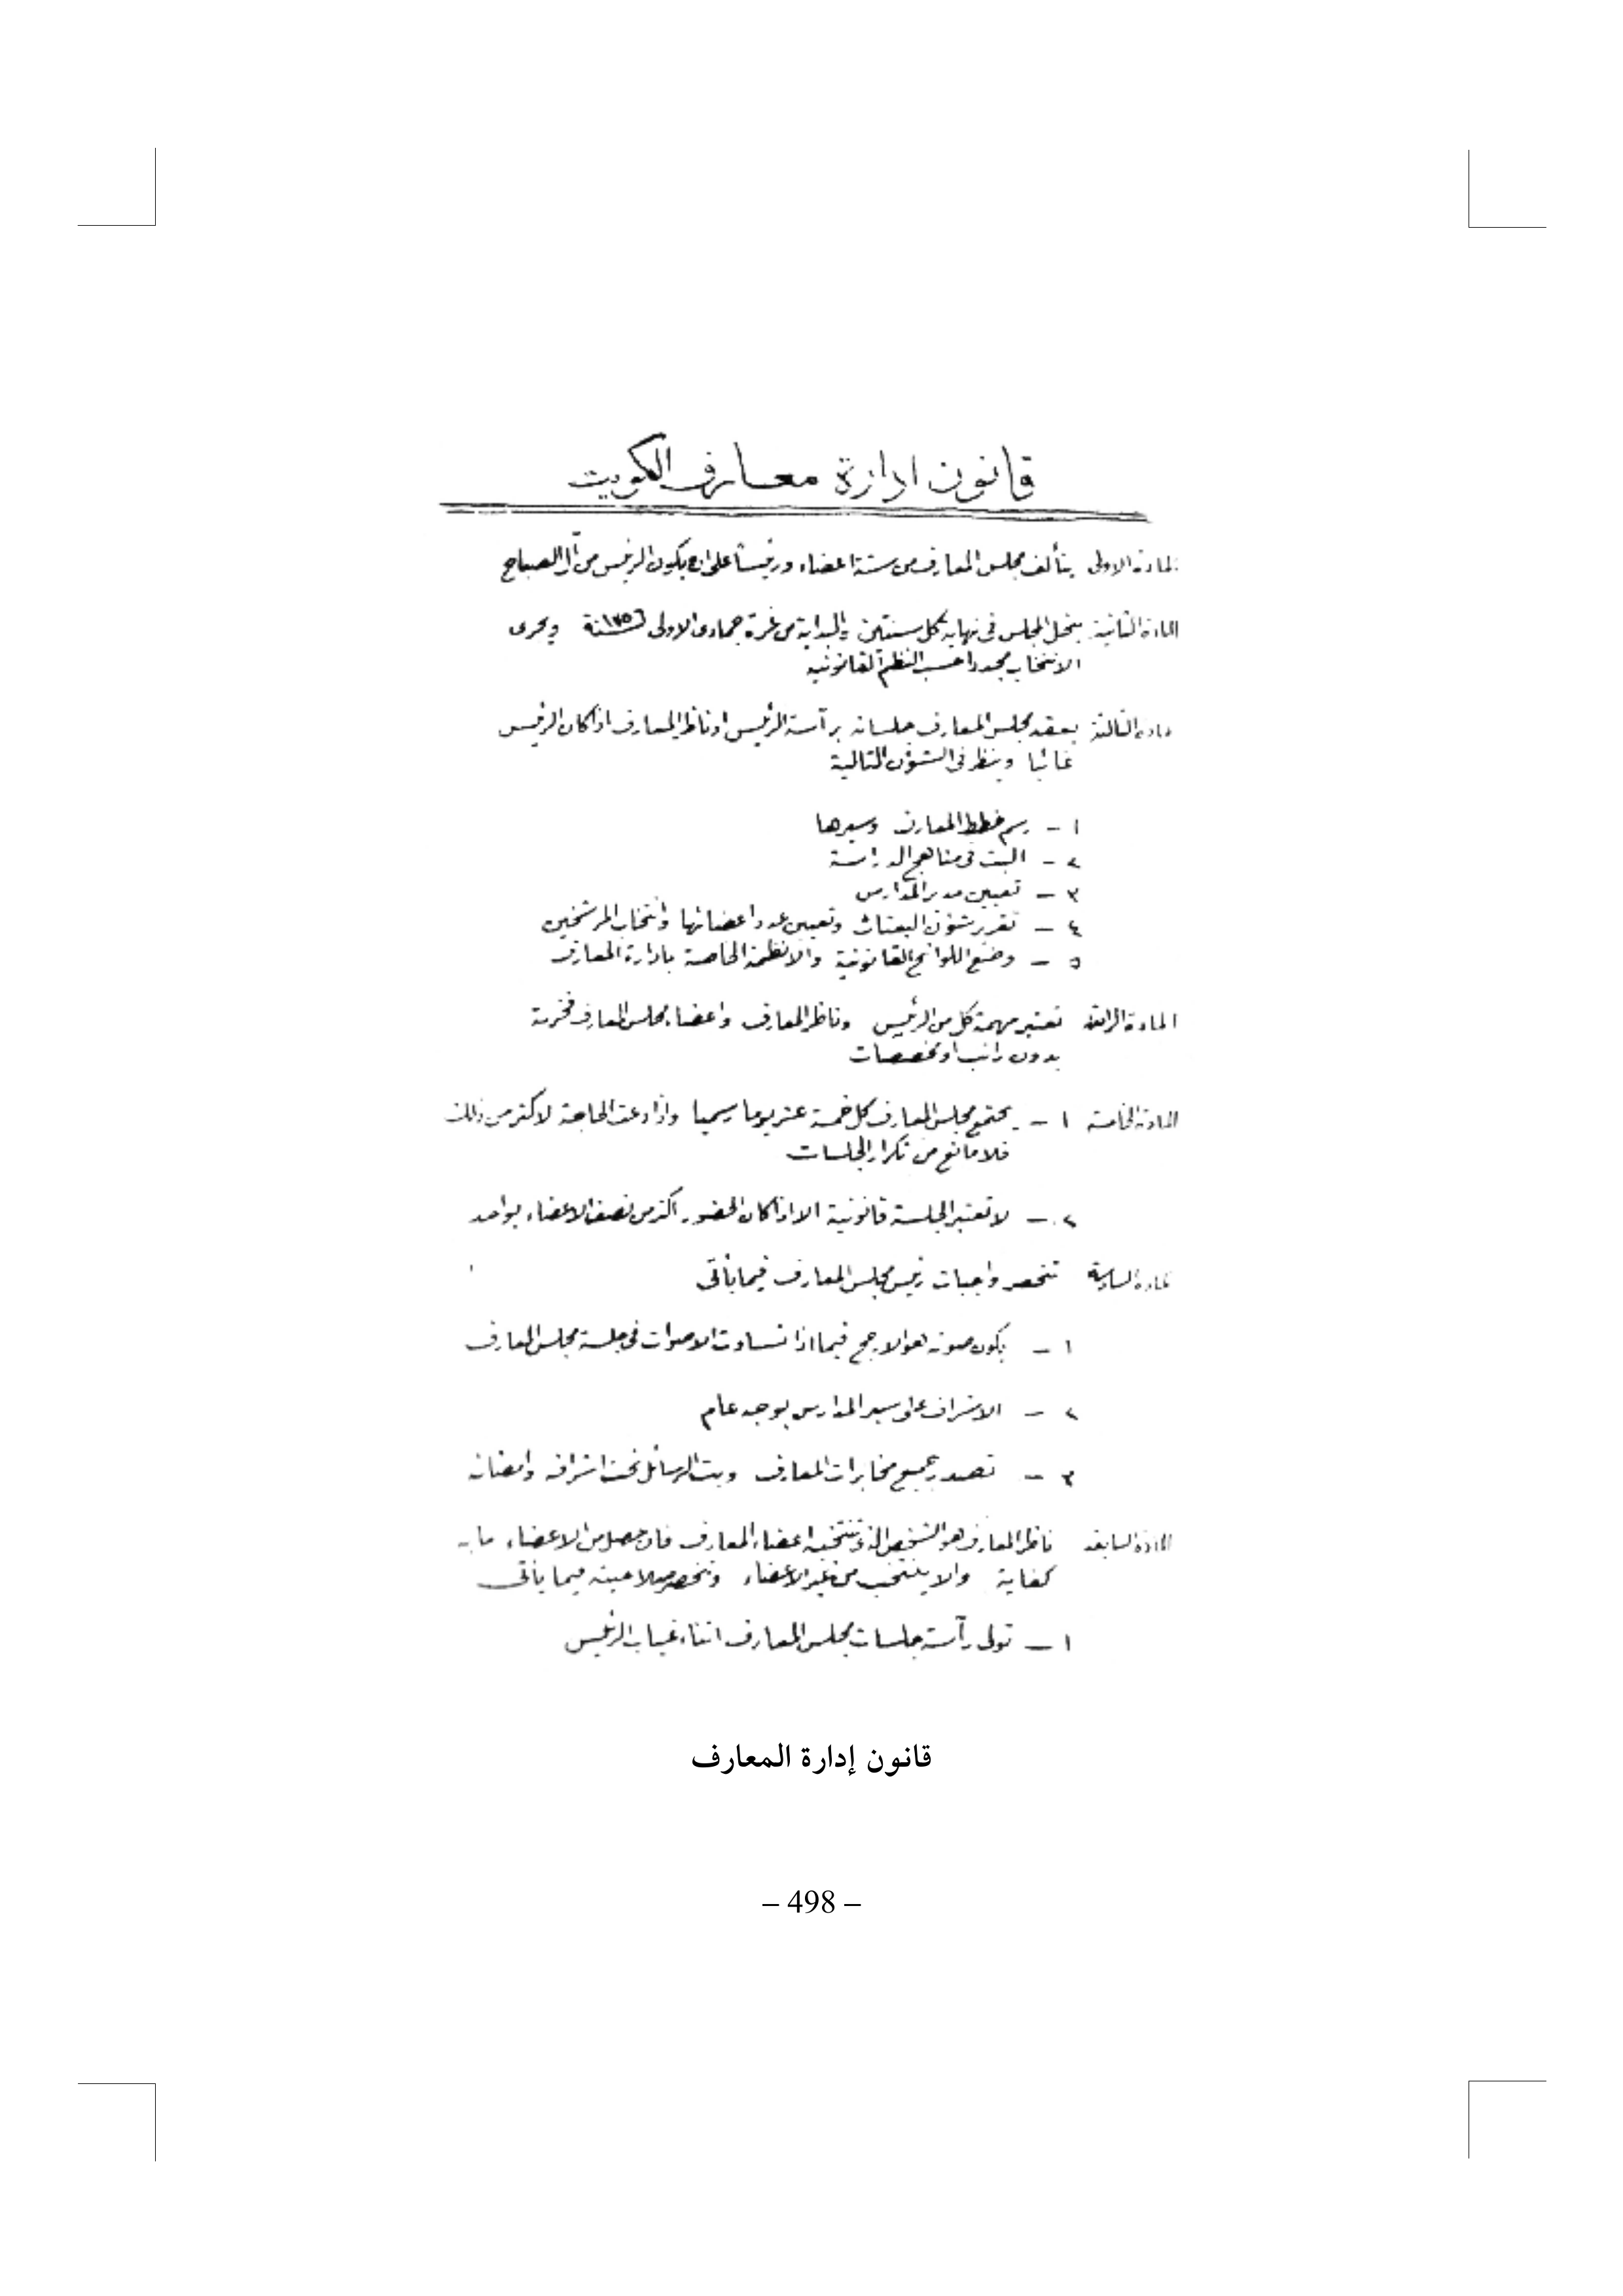 قانون ادارة معارف الكويت
المادة الاولى يتألف مجلس المعارف من ستة اعضاء ورئيساً على ان يكون الرئيس من آل الصباح
المادة الثانية ينحل المجلس في نهاية كل سنتين والبداية من غرة جمادى الاولى سنة ١٣٥٦ ويجرى
الانتخاب مجددا حسب النظم القانونية
مادة الثالثة يعقد مجلس المعارف جلساته برآسة الرئيس او ناظر المعارف اذا كان الرئيس
غائبا وينظر في الشؤن التالية
١ – رسم خطط المعارف وسيرها
٢ – البت في مناهج الدراسة
٣ – تعيين مدير المدارس
٤ – تقرير شؤن البعثات وتعيين عدد اعضائها وانتخاب المرشحين
٥ – وضع اللوائح القانونية والانظمة الخاصة بادارة المعارف
المادة الرابعة تعتبر مهمة كل من الرئيس وناظر المعارف واعضاء مجلس المعارف فخرية
بدون راتب او مخصصات
المادة الخامسة ١ – يجتمع مجلس المعارف كل خمسة عشر يوما رسميا واذا دعت الحاجة لاكثر من ذلك
فلا مانع من تكرار الجلسات
٢ – لا تعتبر الجلسة قانونية الا اذا كان الحضور اكثر من نصف الاعضاء بواحد
مادة السادسة تنحصر واجبات رئيس مجلس المعارف فيما يأتى
١ – يكون صوته هو الارجح فيما اذا تساوت الاصوات في جلسة مجلس المعارف
٢ – الاشراف على سير المدارس بوجه عام
٣ – تصدر جميع مخابرات المعارف وبت الرسائل تحت اشرافه وامضائه
المادة السابعة ناظر المعارف هو الشخص الذى تنتخبه اعضاء المعارف فان حصل من الاعضاء ما به
كفاية والا ينتخب من غير الاعضاء وتنحصر صلاحيته فيما يأتى
١ – تولى رآسة جلسات مجلس المعارف اثناء غياب الرئيس
قانون إدارة المعارف
– 498 –